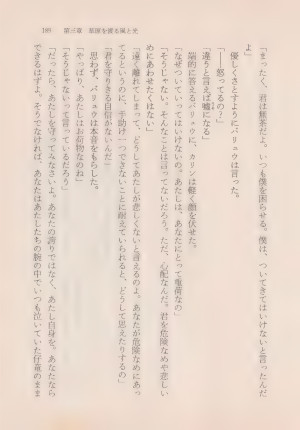 189　第三章　草原を渡る風と光
「まったく、君は無茶だよ。いつも僕を困らせる。僕は、ついてきてはいけないと言ったんだ
よ」
優しくさとすようにバリュウは言った。
「──怒ってるの？」
「違うと言えば嘘になる」
端的に答えるバリュウに、カリンは軽く顔を伏せた。
「なぜついていってはいけないの。あたしは、あなたにとって重荷なの」
「そうじゃない。そんなことは言ってないだろう。ただ、心配なんだ。君を危険なめや悲しい
めにあわせたくはない」
「遠く離れてしまって、どうしてあたしが悲しくないと言えるのよ。あなたが危険なめにあっ
てるというのに、手助け一つできないことに耐えていられると、どうして思えたりするの」
「君を守りきれる自信がないんだ」
思わず、バリュウは本音をもらした。
「やっぱり、あたしはお荷物なのね」
「そうじゃないって言っているだろう」
「だったら、あたしを守ってみなさいよ。あなたの誇りではなく、あたし自身を。あなたなら
できるはずよ。そうでなければ、あなたはあたしたちの腕の中でいつも泣いていた仔竜のまま